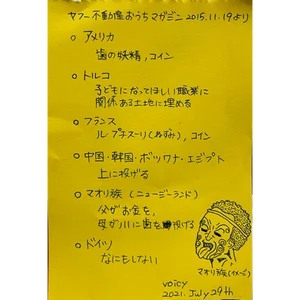 ヤフー不動産おうちマガジン 2015.11.19より
○ アメリカ
歯の妖精,コイン
○ トルコ
子どもになってほしい職業に
関係ある土地に埋める
○ フランス
ル・プチスーリ(ねずみ),コイン
○ 中国・韓国・ボツワナ・エジプト
上に投げる
○ マオリ族(ニュージーランド)
父がお金を,
母が川に歯を投げる
○ ドイツ
なにもしない
マオリ族(イメージ)
voicy
2021. July 29th